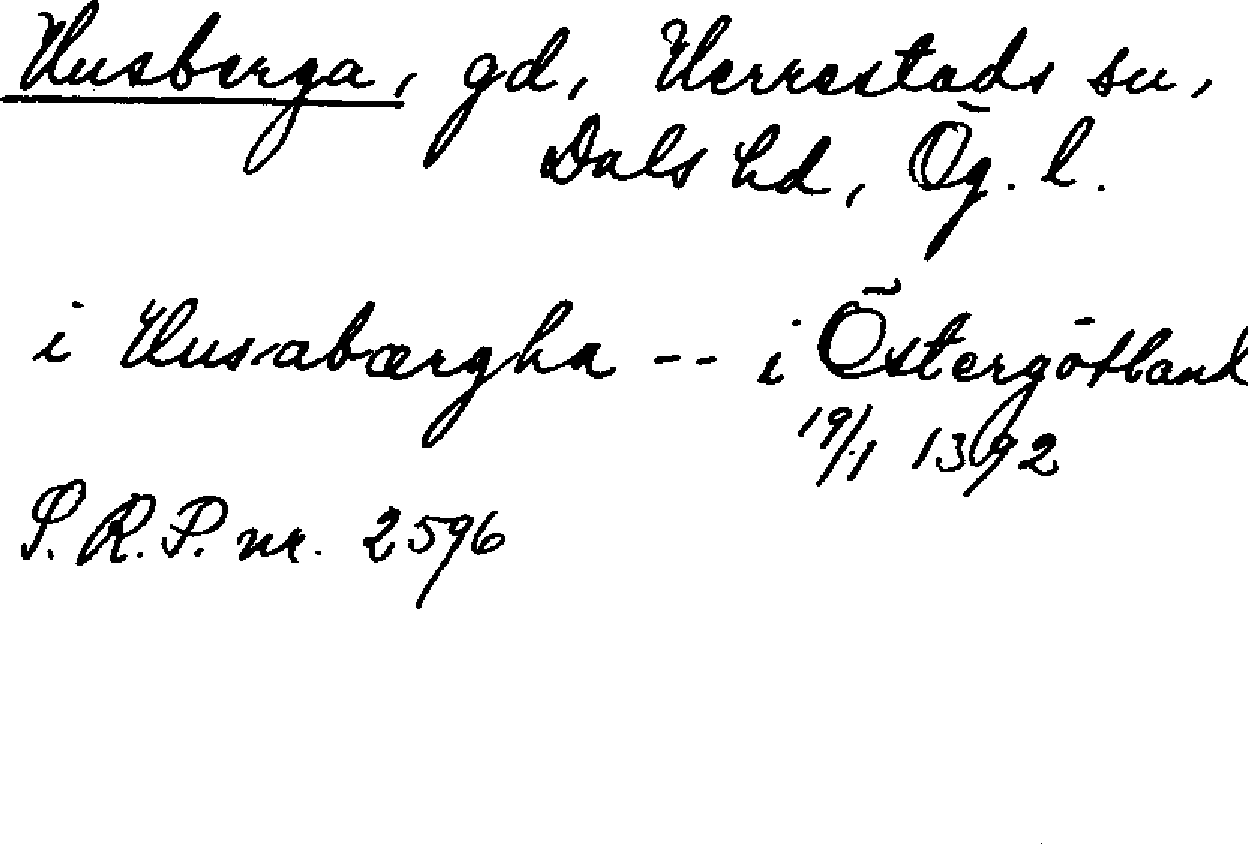 Husberga, gd, Herrestads sn,
Dals hd, Ög. l.
i Husabærgha -- i Östergötland
19/1 1392
S.R.P. nr. 2596